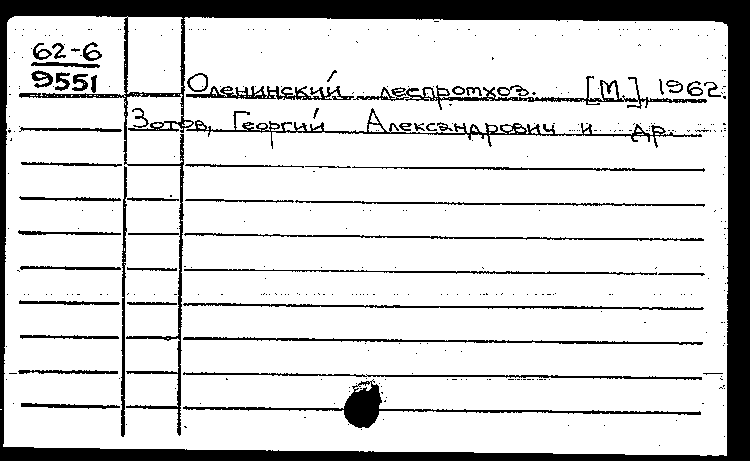 62-6
9551
Оленинский леспромхоз. [М.], 1962.
Зотов, Георгий Александрович и др.